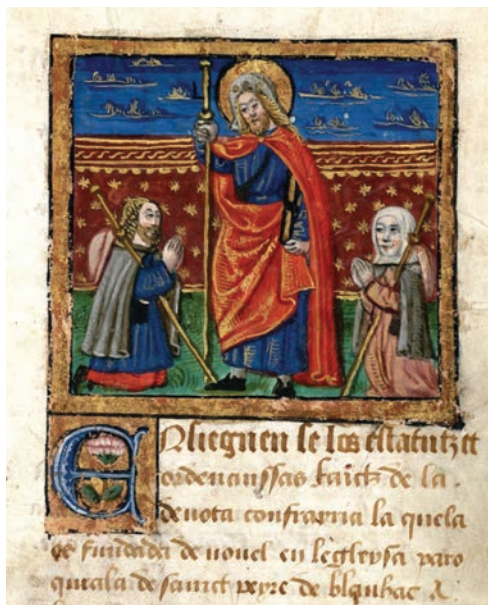 Ensieguen se los estatutz et
ordenanssas faictz de la
devota confrarria la quela
es fundada de novel en legleysa paro
quiala de sainct peyre de blanhac a